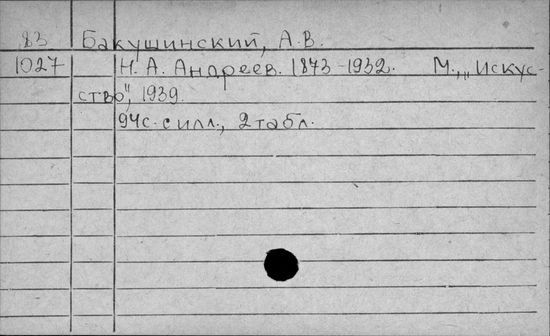 83 Бакушинский, А.В.
1027 Н. А. Андреев. 1873-1932. М., „Искус-
ство", 1939.
94с. с илл., 2 табл.